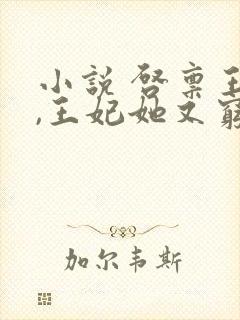 小說 啓稟王
,王妃她又窮
加尔韦斯